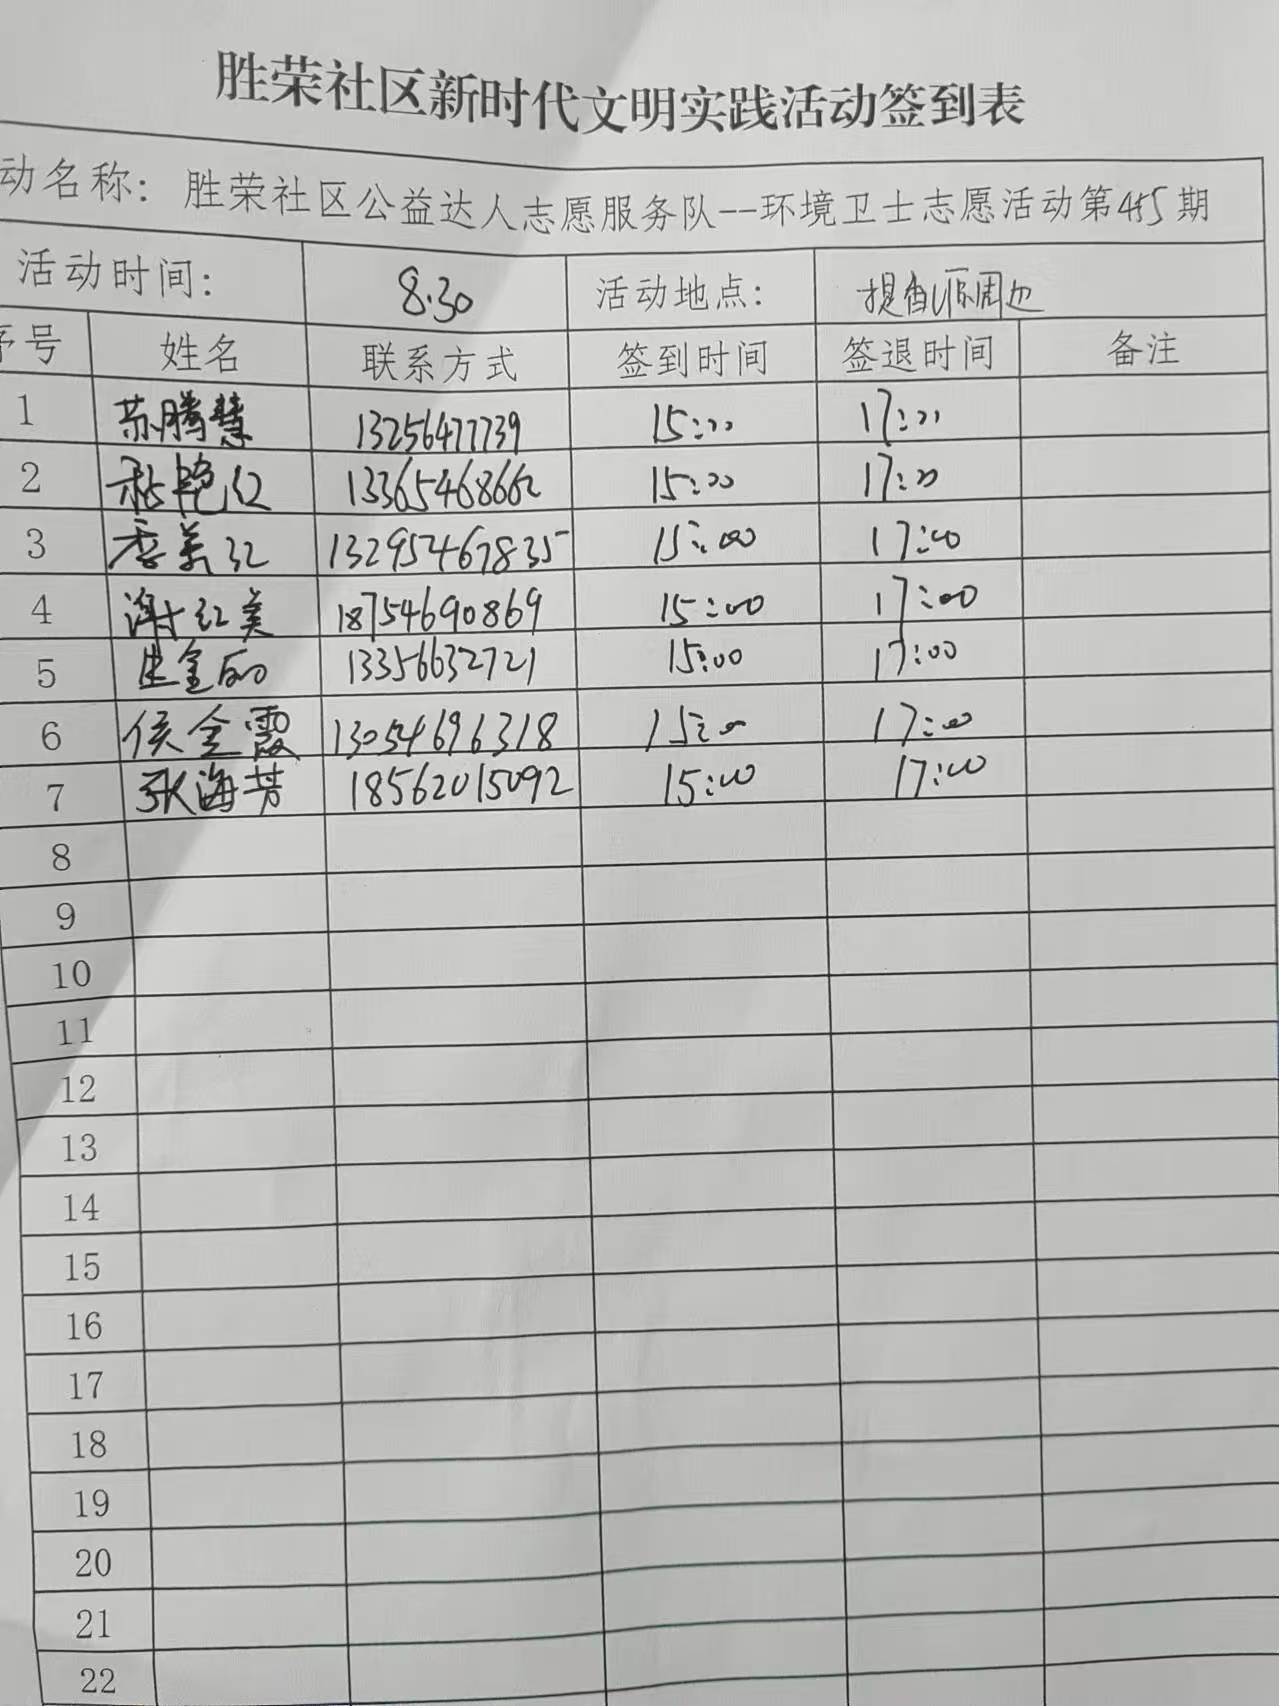 胜荣社区新时代文明实践活动签到表
动名称：胜荣社区公益达人志愿服务队--环境卫士志愿活动第485期
活动时间： 8.30 活动地点： 提香公馆周边
序号 姓名 联系方式 签到时间 签退时间 备注
1 苏腾慧 13256477739 15:00 17:00
2 艳红 13365468662 15:00 17:00
3 李美红 13295467835 15:00 17:00
4 谢红美 18754690869 15:00 17:00
5 金 13356632721 15:00 17:00
6 侯全霞 13054696318 15:00 17:00
7 张海芳 18562015092 15:00 17:00
8
9
10
11
12
13
14
15
16
17
18
19
20
21
22